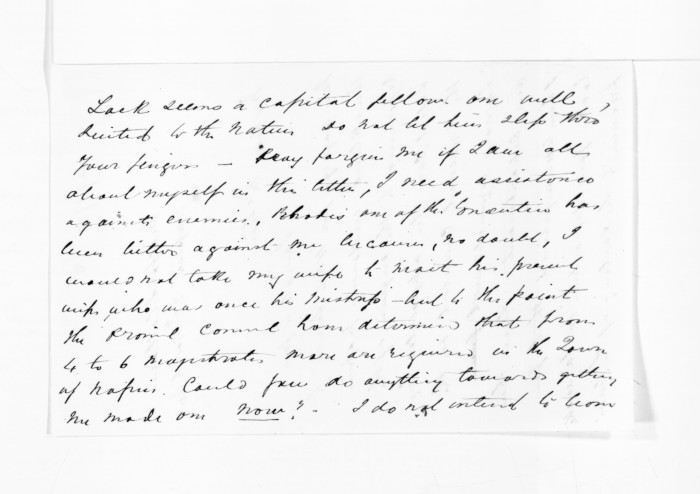 Lock seems a capital fellow one well,
suited to the natives do not let him slip thro
your fingers — Pray forgive me if I am all
about myself in this letter, I need assistance
against enemies. Rhodes one of the Executive has
been bitter against me because, no doubt, I
would not take my wife to visit his present
wife, who was once his mistress — but to the point
the Provinl Council have determined that from
4 to 6 magistrates more are required in the Town
of Napier. Could you do anything towards getting
me made one now? — I do not intend to leave